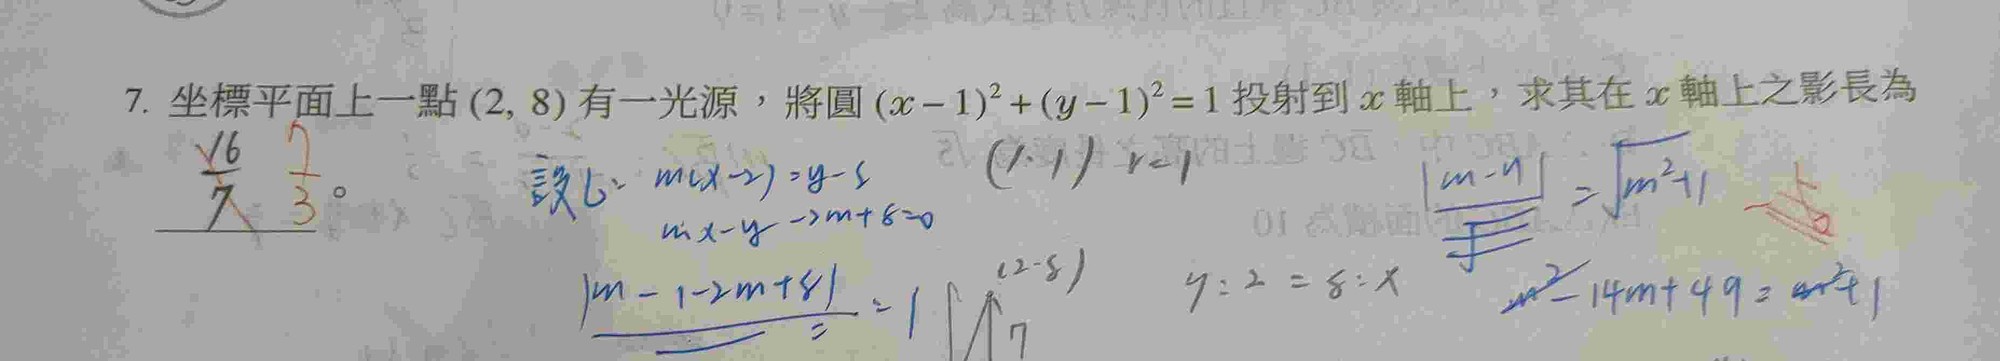 7. 坐標平面上一點 (2, 8) 有一光源，將圓 (x－1)²＋(y－1)²＝1 投射到 x 軸上，求其在 x 軸上之影長為
16/7 7/3 。
設L: m(x-2)=y-8
mx-y-2m+8=0
(1,1) r=1
|m-7| = √m²+1
|m-1-2m+8| = 1
(2,8)
7
7:2=8:x
m²-14m+49=m²+1